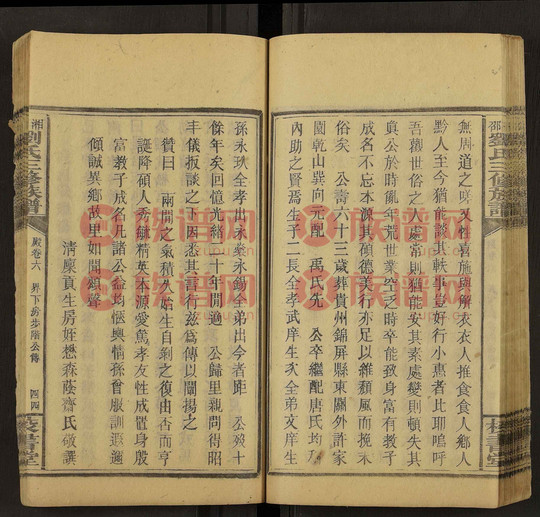 無周道之嘆又性喜施與解衣衣人推食食人鄉人
黔人至今猶能談其軼事豈好行小惠者比耶嗚呼
吾觀世俗之人處常則猶能安其素處變則頓失其
真公於時亂年荒世業空乏時卒能致身富有教子
成名不忘本源其碩德美行亦足以維頹風而挽末
俗矣 公壽六十三歲葬貴州錦屏縣東關外許家
園乾山巽向元配 禹氏先 公卒繼配唐氏均
內助之賢焉生子二長全孝武庠生次全弟文庠生
孫永玖全孝出永燊永錫全弟出今者距 公歿十
餘年矣回憶光緒二十年間過 公歸里親問得昭
丰儀扳談之下因悉其言行茲為傳以闡揚之
贊曰 兩間之氣積久始生自剝之復由否而亨
誕降碩人秀毓精英本源愛篤孝友性成置身殷
富教子成名凡諸公益均愜輿情孫曾服訓遐邇
傾誠異鄉故里如聞頌聲
清廩貢生房姪懋森蔭齋氏敬譔
劉氏三修族譜
殿卷六 界下房步階公傳
四四